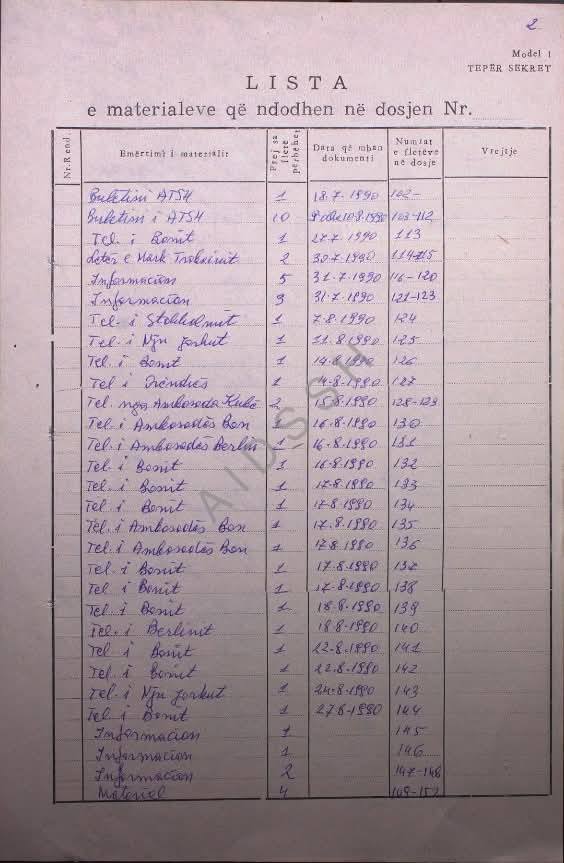 2
Model 1
TEPËR SEKRET
LISTA
e materialeve që ndodhen në dosjen Nr.
Nr. Rend. Emërtimi i materialit Prej sa fletë përbëhet Data që mban dokumenti Numrat e fletëve në dosje Vrejtje
Buletini ATSH 1 18.7.1990 102-
Buletini i ATSH 10 10.8.1990 103-112
Tel. i Bonit 1 27.7.1990 113
Letër e Mark 2 30.7.1990 114-115
Informacion 5 31.7.1990 116-120
Informacion 3 31.7.1990 121-123
Tel. i Stokholmit 1 7.8.1990 124
Tel. i Nju Jorkut 1 11.8.1990 125
Tel. i Bonit 1 14.8.1990 126
Tel i 1 14.8.1990 127
Tel. nga Ambasada Kubë 2 15.8.1990 128-129
Tel. i Ambasadës Bon 1 16.8.1990 130
Tel. i Ambasadës Berlin 1 16.8.1990 131
Tel. i Bonit 1 16.8.1990 132
Tel. i Bonit 1 17.8.1990 133
Tel. i Bonit 1 17.8.1990 134
Tel. i Ambasadës Bon 1 17.8.1990 135
Tel. i Ambasadës Bon 1 17.8.1990 136
Tel. i Bonit 1 17.8.1990 137
Tel. i Bonit 1 17.8.1990 138
Tel. i Bonit 1 18.8.1990 139
Tel. i Berlinit 1 18.8.1990 140
Tel. i Bonit 1 22.8.1990 141
Tel. i Bonit 1 22.8.1990 142
Tel. i Nju Jorkut 1 24.8.1990 143
Tel. i Bonit 1 27.8.1990 144
Informacion 1 145
Informacion 1 146
Informacion 2 147-148
Material 4 149-152
AIDSSH